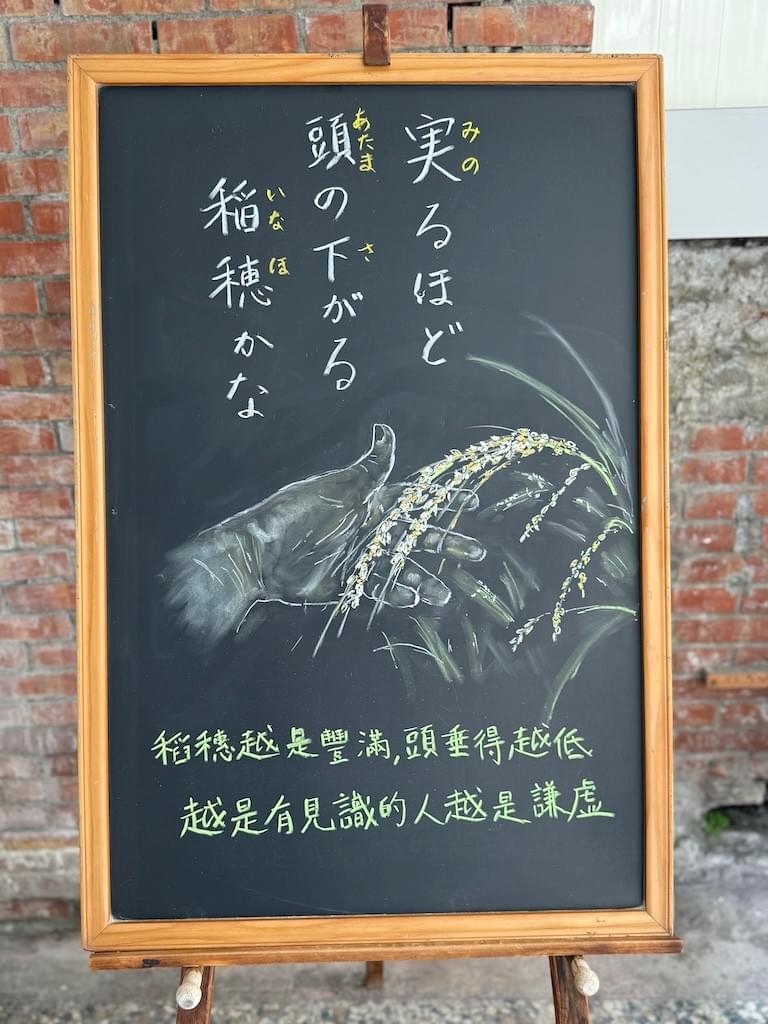 実るほど
みの
頭の下がる
あたま
さ
稲穂かな
いな
ほ
稻穗越是豐滿,頭垂得越低
越是有見識的人越是謙虛